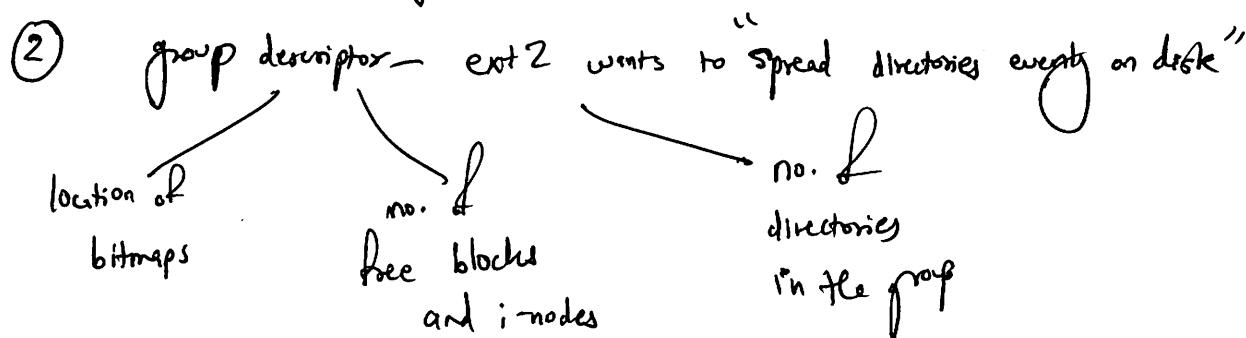 ② group descriptor — ext2 wants to "spread directories evenly on disk"
location of
bitmaps
no. of
free blocks
and i-nodes
no. of
directories
in the group